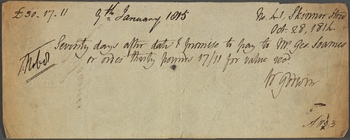 £30.17.11 9th January 1815 No 41 Skinner Street
Oct. 28, 1814
Seventy days after date I promise to pay to Mr Geo
or order thirty pounds 17/11 for value recd
W Godwin